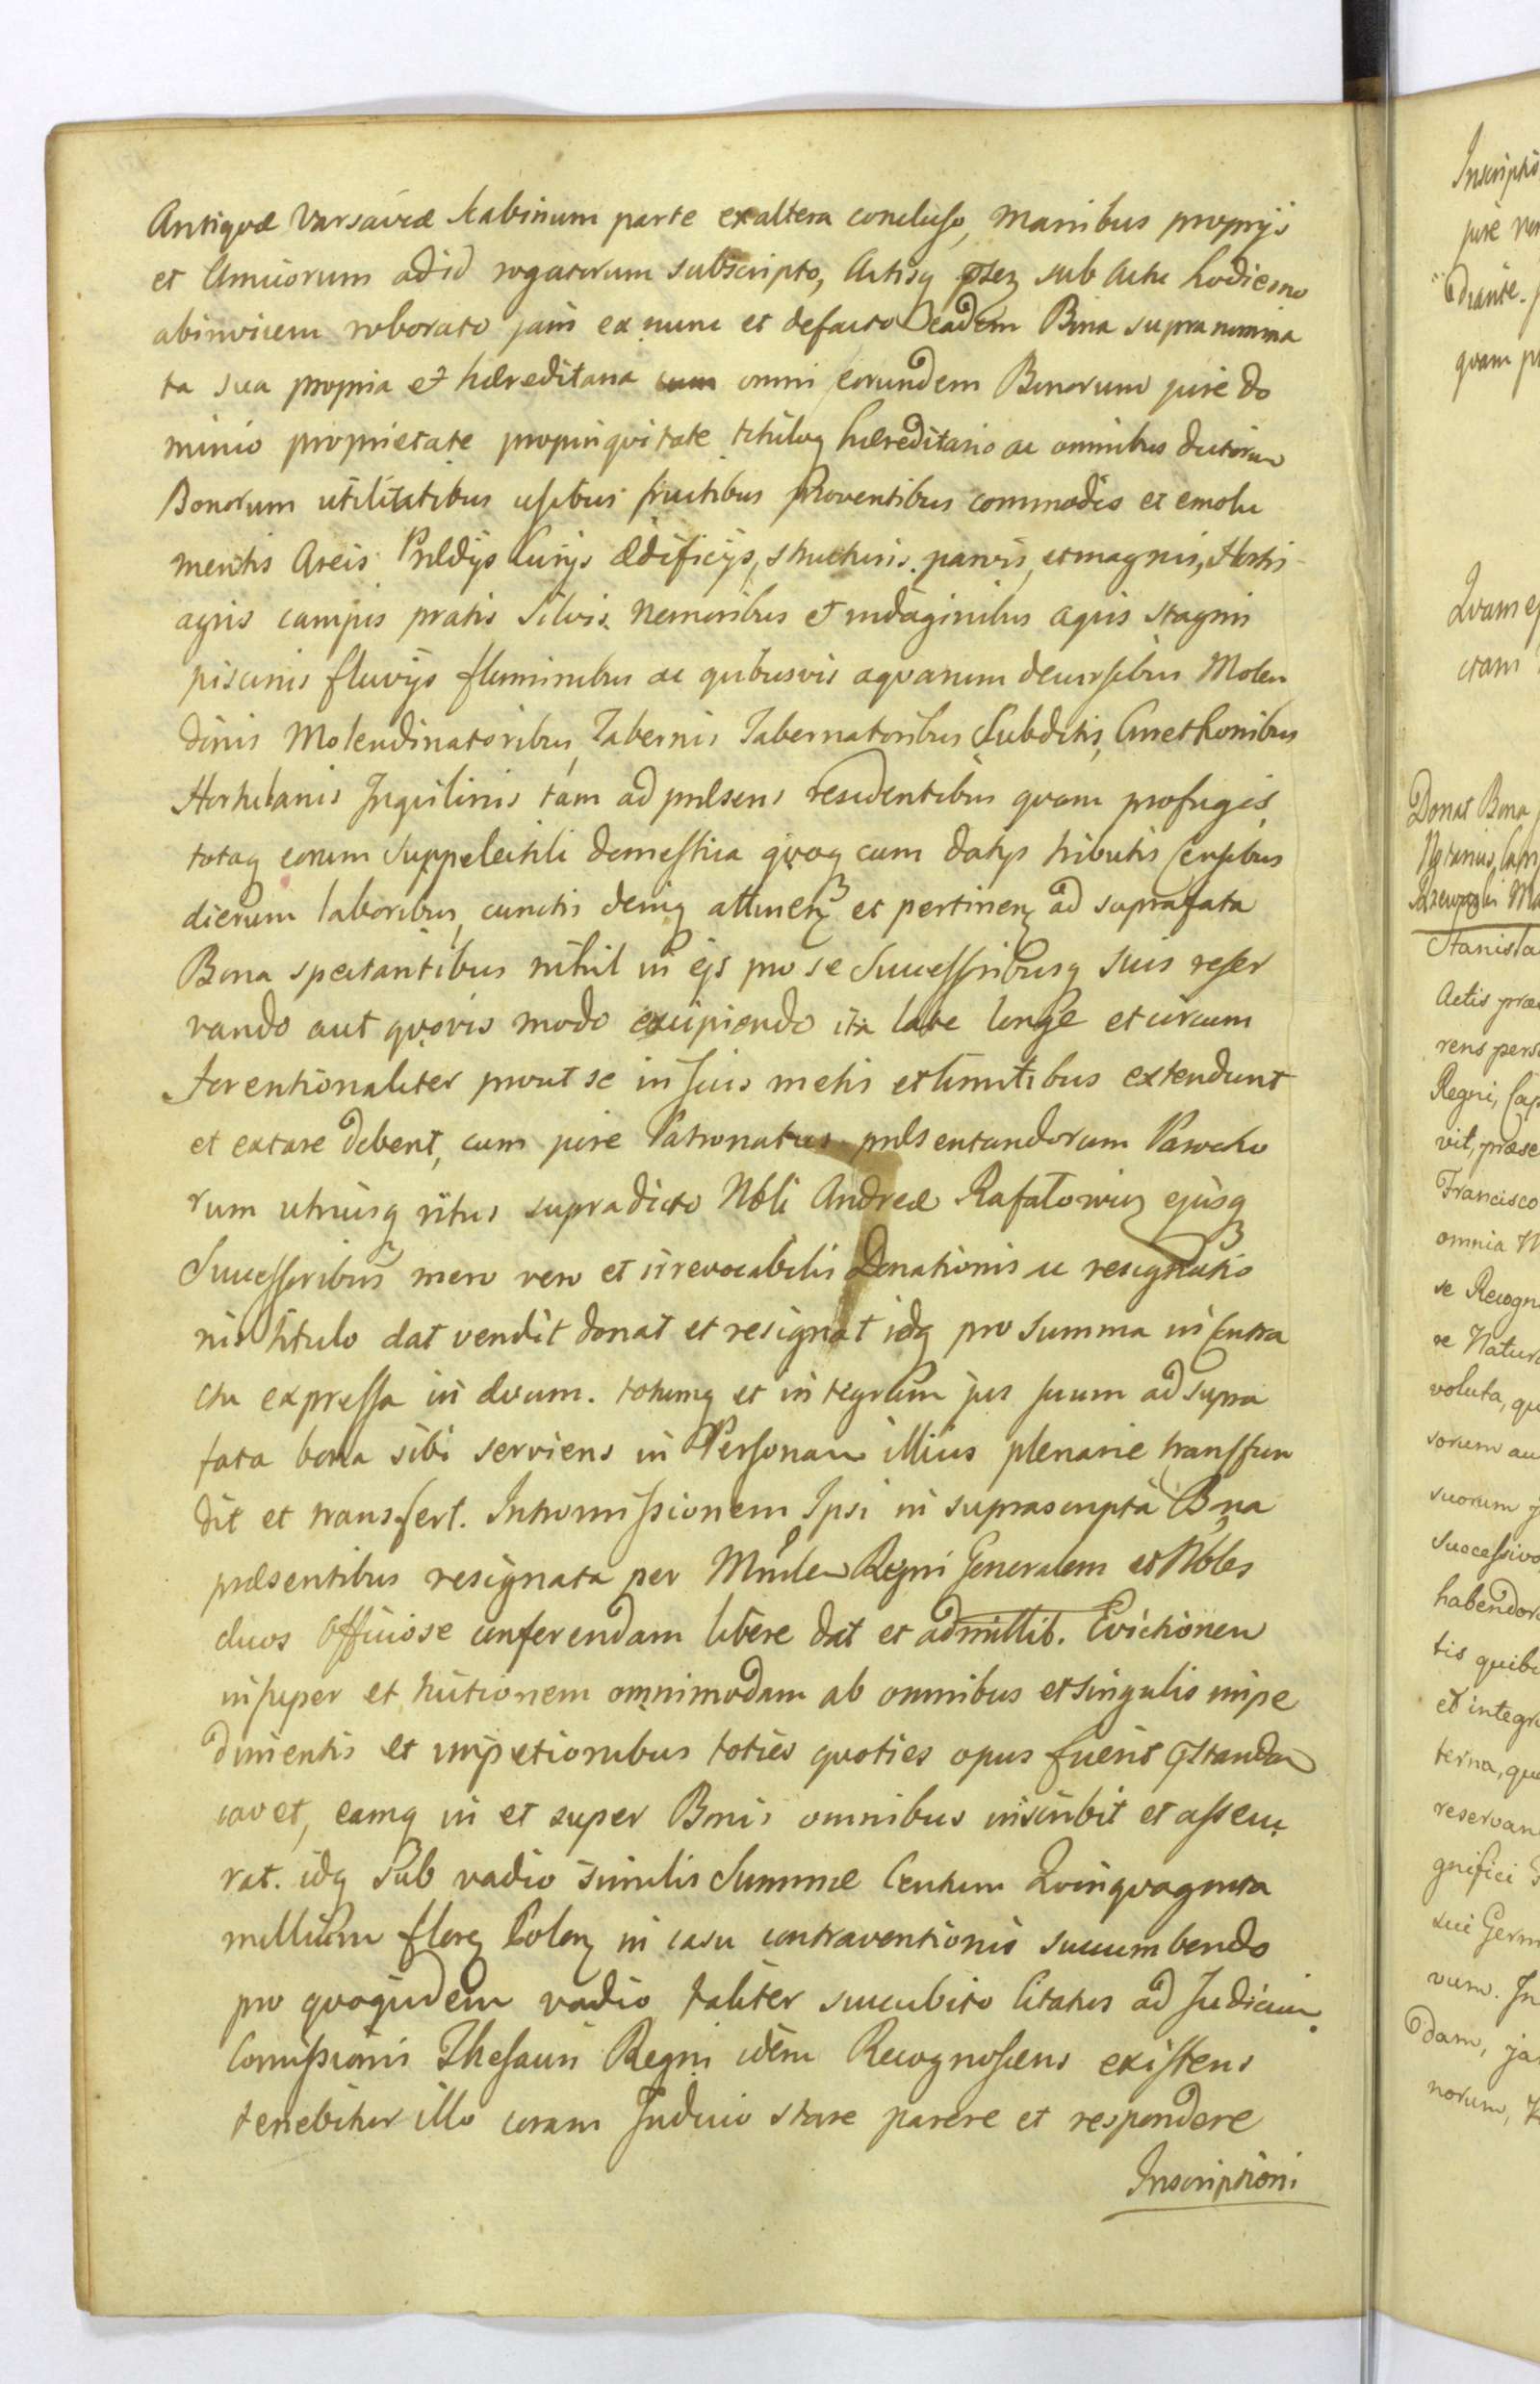 Antiqvæ Varsaviæ Scabinum parte exaltera concluso, Manibus proprijs
et Amicorum adid rogatorum subscripto, Actisq psez sub Actu hodierno
abinvicem roborato jam ex nunc et defacto eadem Bona supranomina
ta sua propria et hæreditaria omni eorundem Bonorum jure do
minio proprietate propinqvitate tituloq hæreditario ac omnibus dictorum
Bonorum utilitatibus usibus fructibus Proventibus commodis et emolu
mentis Areis Prædijs Curijs Ædificijs, structuris parvis, et magnis, Hortis
agris campis pratis Silvis Nemoribus et indaginibus aqvis stagnis
piscinis fluvijs fluminibus ac qvibusvis aqvarum decursibus Molen
dinis Molendinatoribus, Tabernis Tabernatoribus Subditis, Cmethonibus
Hortulanis Inqvilinis tam ad præsens residentibus qvam profugis,
totaq eorum Suppelectili domestica qvoq cum datijs tributis Censibus
dierum laboribus, cunctis deniq attinenz et pertinenz ad suprafata
Bona spectantibus nihil in ejs pro se Successoribusq suis reser
vando aut qvovis modo excipiendo ita late longe et circum
ferentionaliter prout se in suis metis et limitibus extendunt
et extare debent, cum jure Patronatus præsentandorum Parocho
rum utriusq ritus supradicto Nbli Andreæ Rafałowicz ejusq
Successoribus mero vero et irrevocabilis Donationis ac resignatio
nis titulo dat vendit donat et resignat idq pro summa in Contra
ctu expressa in divum. totumq et integrum jus suum ad supra
fata bona sibi serviens in Personam illius plenarie transfun
dit et transfert. Intromissionem Ipsi in suprascripta Bna
præsentibus resignata per Mnrlem Regni Generalem et Nbles
duos Officiose conferendam libere dat et admittit. Evictionem
insuper et tuitionem omnimodam ab omnibus et singulis impe
dimentis et impetionibus toties qvoties opus fuerit pstandam
cavet, eamq in et super Bonis omnibus inscribit et assecu
rat. idq Sub vadio similis Summæ Centum Qvinqvaginta
millium florz Polonz in casu contraventionis succumbendo
pro qvoqvidem vadio taliter succubito Citatus ad Judicium
Comissionis Thesauri Regni idem Recognoscens existens
tenebitur illo coram Judicio stare parere et respondere
Inscriptioni
Inscriptio
jure
diante.
qvam
Qvam
ctam
Donat Bona
Actis præ
rens perso
Regni, Cap
vit, præse
Francisco
omnia
se Recogn
voluta, qu
sorum au
suorum
successivo
habendor
tis quibu
et integr
terna, qu
reservan
gnifici
sui Germ
vum. In
dam, ja
norum,